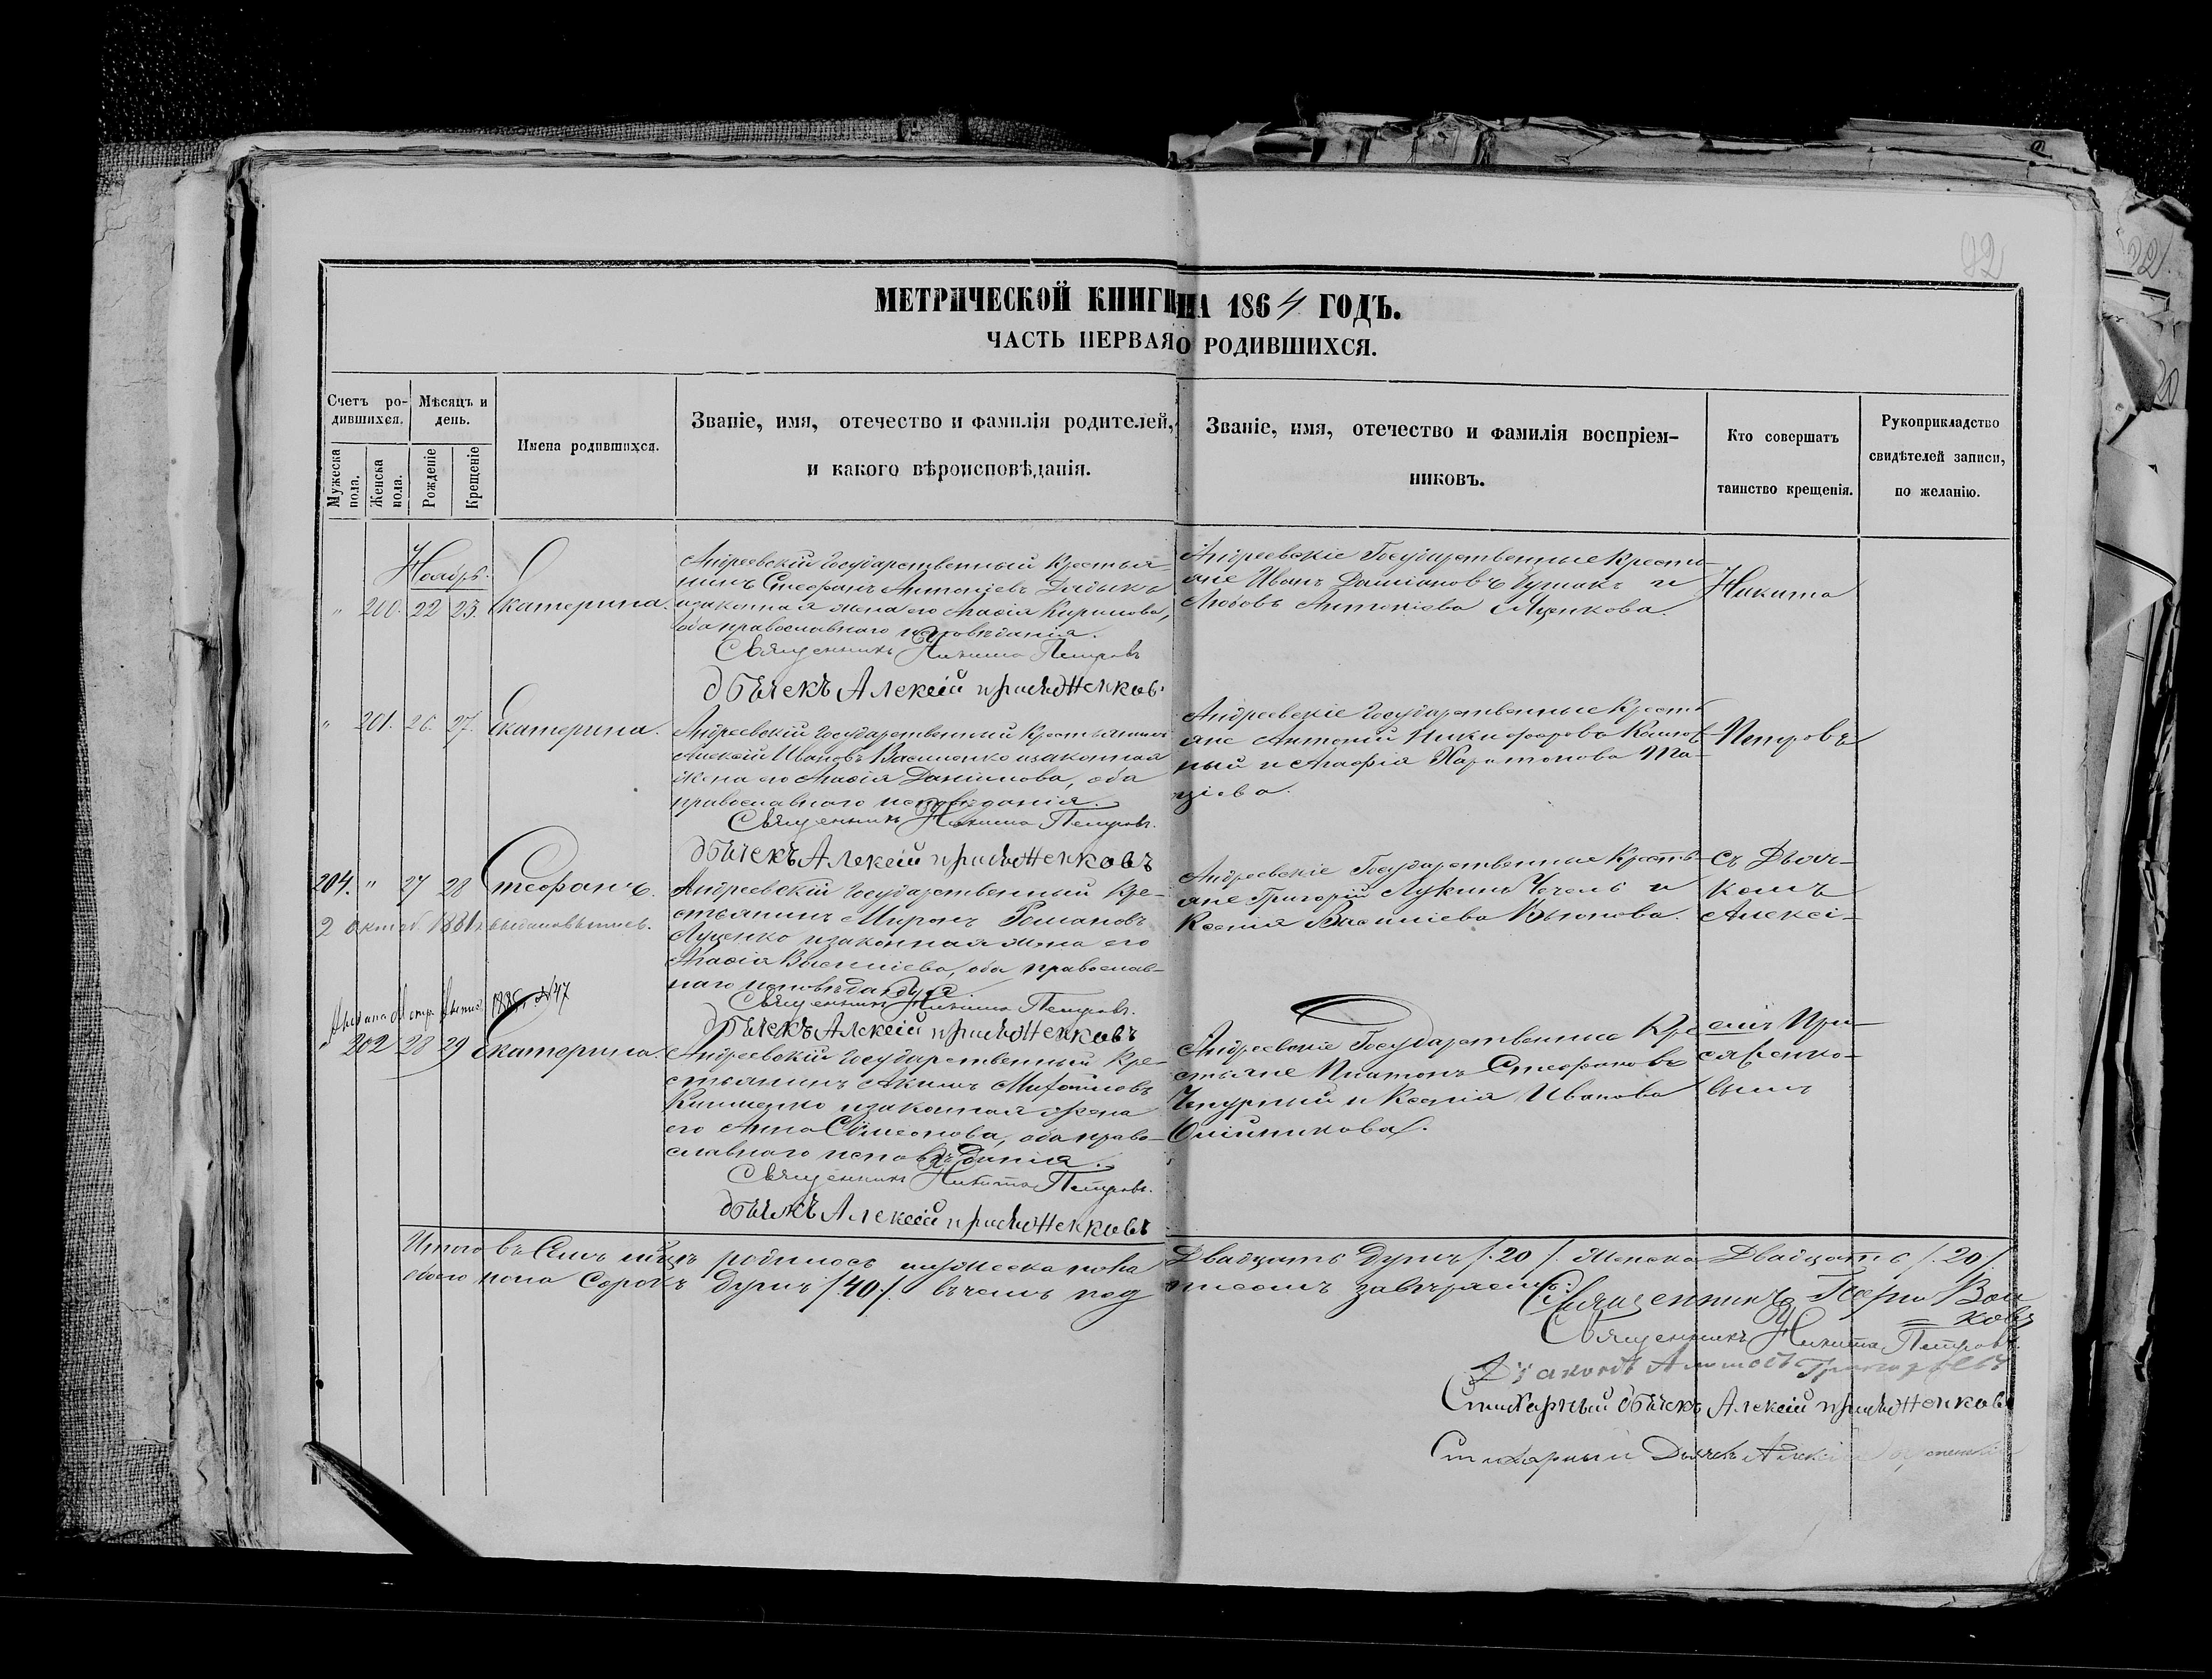 92
МЕТРИЧЕСКОЙ КНИГИ НА 1864 ГОДЪ.
ЧАСТЬ ПЕРВАЯ О РОДИВШИХСЯ.
Счетъ ро-
дившихся.
Мужеска
пола.
Женска
пола.
Мѣсяцъ и
день.
Рожденіе
Крещеніе
Имена родившихся.
Званіе, имя, отечество и фамилія родителей,
и какого вѣроисповѣданія.
Званіе, имя, отечество и фамилія воспріем-
никовъ.
Кто совершатъ
таинство крещенія.
Рукоприкладство
свидѣтелей записи,
по желанію.
Ноябрь.
" 200. 22 23. Екатерина.
Андреевскій Государственный Крестья-
нинъ Стефанъ Антоніевъ
изаконная жена его Агафія Кирилова,
оба православнаго исповѣданія.
Священникъ Никита Петровъ
дьячекъ Алексій присяженковъ
Андреевскіе Государственные Кресть-
яне Иванъ Даміановъ Бутакъ и
Любовь Антоніева Яценкова.
Никита
" 201. 26. 27. Екатерина.
Андреевскій Государственный Крестьянинъ
Алексій Ивановъ Василенко изаконная
жена его Агафія Даніилова, оба
православнаго исповѣданія.
Священникъ Никита Петровъ.
дьячекъ Алексій присяженковъ
Андреевскіе Государственные Кресть-
яне Антоній Никифоровъ
ный и Агафія Харитонова
Петровъ
204. " 27 28 Стефанъ.
2 октяб. 1881 г.
Андреевскій Государственный Кре-
стьянинъ Миронъ Романовъ
Луценко изаконная жена его
Агафія Василіева, оба православ-
наго исповѣданія
Священникъ Никита Петровъ.
дьячекъ Алексій присяженковъ
Андреевскіе Государственные Кресть-
яне Григорій Лукинъ Чечель и
Ксенія Василіева
съ Дьяч-
комъ
Алексі-
№47
" 202 28 29 Екатерина.
Андреевскій Государственный Кре-
стьянинъ Акимъ Митрофановъ
Клименко изаконная жена
его Анна Симеонова, оба право-
славнаго исповѣданія.
Священникъ Никита Петровъ.
дьячекъ Алексій присяженковъ
Андреевскіе Государственные Кре-
стьяне Платонъ Стефановъ
Чепурный и Ксенія Иванова
Олійникова.
емъ При-
сяженко-
вымъ
Итого въ Семъ мѣсяцѣ родилось мужеска пола Двадцать Душъ /:20:/ Женска Двадцать /:20:/
обоего пола Сорокъ Душъ /:40:/ въ чемъ подписомъ завѣряемъ:
Священникъ Георгій Вол-
ковъ
Священникъ Никита Петровъ.
Діаконъ Григорьевъ
Стихарный дьячекъ Алексій присяженковъ
Стихарный Дьячекъ Алексій